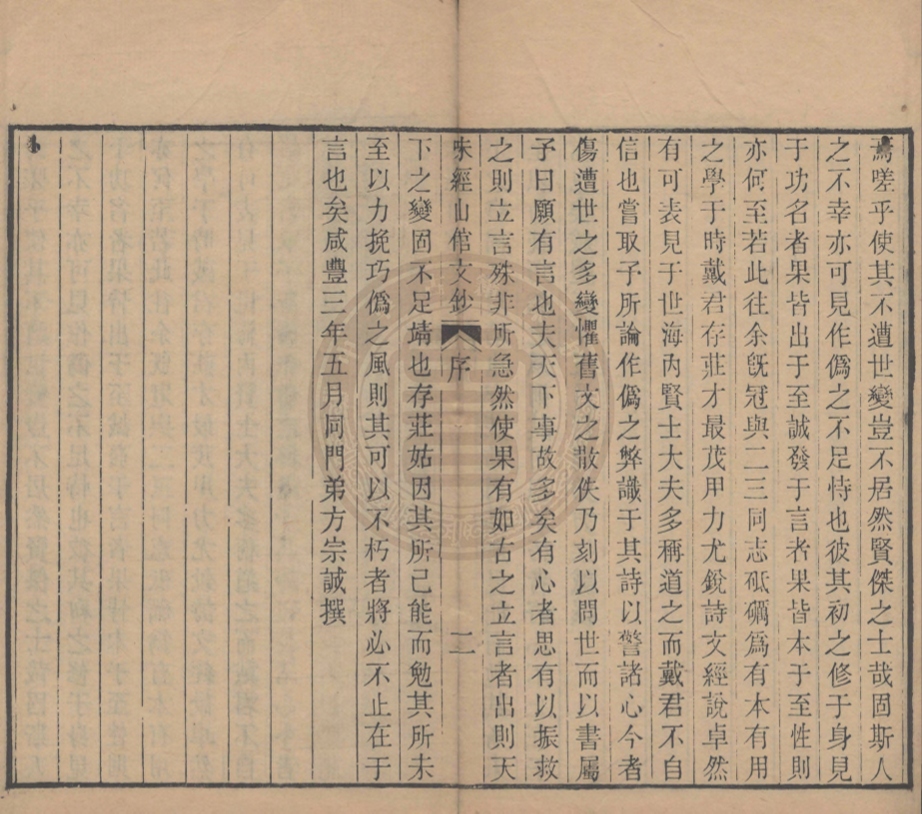 焉嗟乎使其不遭世變豈不居然賢傑之士哉固斯人
之不幸亦可見作僞之不足恃也彼其初之修于身見
于功名者果皆出于至誠發于言者果皆本于至性則
亦何至若此往余旣冠與二三同志砥礪爲有本有用
之學于時戴君存莊才最茂甲力尤銳詩文經說卓然
有可表見于世海內賢士大夫多稱道之而戴君不自
信也嘗取予所論作僞之弊識于其詩以警諸心今者
傷遭世之多變懼舊文之散佚乃刻以問世而以書屬
予曰願有言也夫天下事故多矣有心者思有以振救
之則立言殊非所急然使果有如古之立言者出則天
味經山館文鈔 序 二
下之變固不足靖也存莊姑因其所已能而勉其所未
至以力挽巧僞之風則其可以不朽者將必不止在于
言也矣咸豐三年五月同門弟方宗誠撰